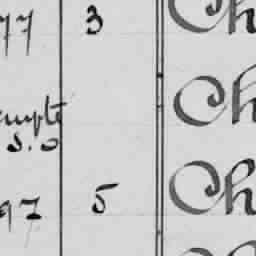 77 3 Ch
empte Ch
S.O
97 5 Ch